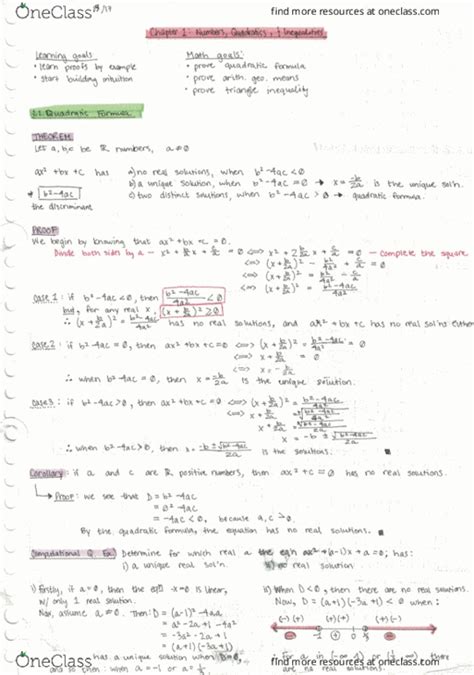 OneClass
find more resources at oneclass.com
Chapter 1: Numbers, Quadratics, & Inequalities
Learning goals
• learn proofs by example
• start building intuition
Math goals:
• prove quadratic formula
• prove arith. geo. means
• prove triangle inequality
1.1 Quadratic Formula
THEOREM
Let a, b, c be ℝ numbers, a≠0
ax² + bx + c has a) no real solutions, when b²-4ac < 0
b) a unique solution, when b²-4ac = 0 → x = -b/2a is the unique sol'n.
* b²-4ac c) two distinct solutions, when b²-4ac > 0 → quadratic formula.
the discriminant
PROOF
We begin by knowing that ax² + bx + c = 0.
Divide both sides by a - x² + b/a x + c/a = 0 ⟺ x² + 2 b/2a x + c/a = 0 - complete the square
⟺ (x + b/2a)² - b²/4a² + c/a = 0
⟺ (x + b/2a)² = b²/4a² - c/a
⟺ (x + b/2a)² = b²-4ac/4a²
Case 1: if b²-4ac < 0, then b²-4ac/4a² < 0
but, for any real x, (x + b/2a)² ≥ 0
∴ (x + b/2a)² = b²-4ac/4a² has no real solutions, and ax² + bx + c has no real sol'ns either
Case 2: if b²-4ac = 0, then ax² + bx + c = 0 ⟺ (x + b/2a)² = 0
⟺ x + b/2a = 0
⟺ x = -b/2a
∴ when b²-4ac = 0, then x = -b/2a is the unique solution.
Case 3: if b²-4ac > 0, then ax² + bx + c = 0 ⟺ (x + b/2a)² = b²-4ac/4a²
∴ when b²-4ac > 0, then x = -b ± √b²-4ac/2a is the solutions.
Corollary: if a and c are ℝ positive numbers, then ax² + c = 0 has no real solutions.
Proof: we see that D = b²-4ac
= 0²-4ac
= -4ac < 0, because a, c > 0.
By the quadratic formula, the equation has no real solutions.
Computational Q. Ex: Determine for which real a the eqn ax² + (a-1)x + a = 0; has:
i) a unique real sol'n. ii) no real solution
i) firstly, if a = 0, then the eqn -x = 0 is linear,
w/ only 1 real solution.
Now, assume a ≠ 0. Then: D = (a-1)² - 4aa
= a² - 2a + 1 - 4a²
= -3a² - 2a + 1
= (a+1)(-3a+1)
has a unique solution when D = 0,
and so then: when a = -1 or a = 1/3
ii) When D < 0, then there are no real solutions.
Now, D = (a+1)(-3a+1) < 0 when:
(-)(+) (+)(+) (+)(-)
-1 0 1/3
OneClass
find more resources at oneclass.com